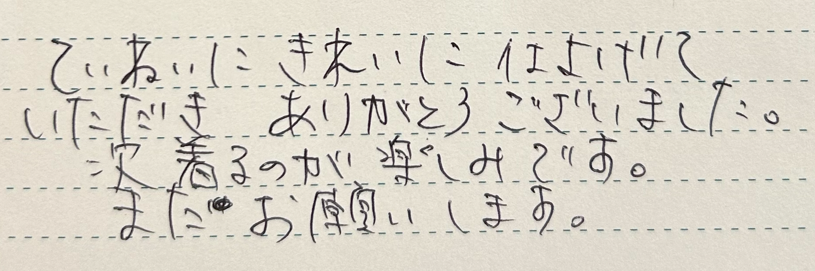 ていねいに きれいに 仕上げて
いただき ありがとうございました。
次着るのが楽しみです。
まだお願いします。